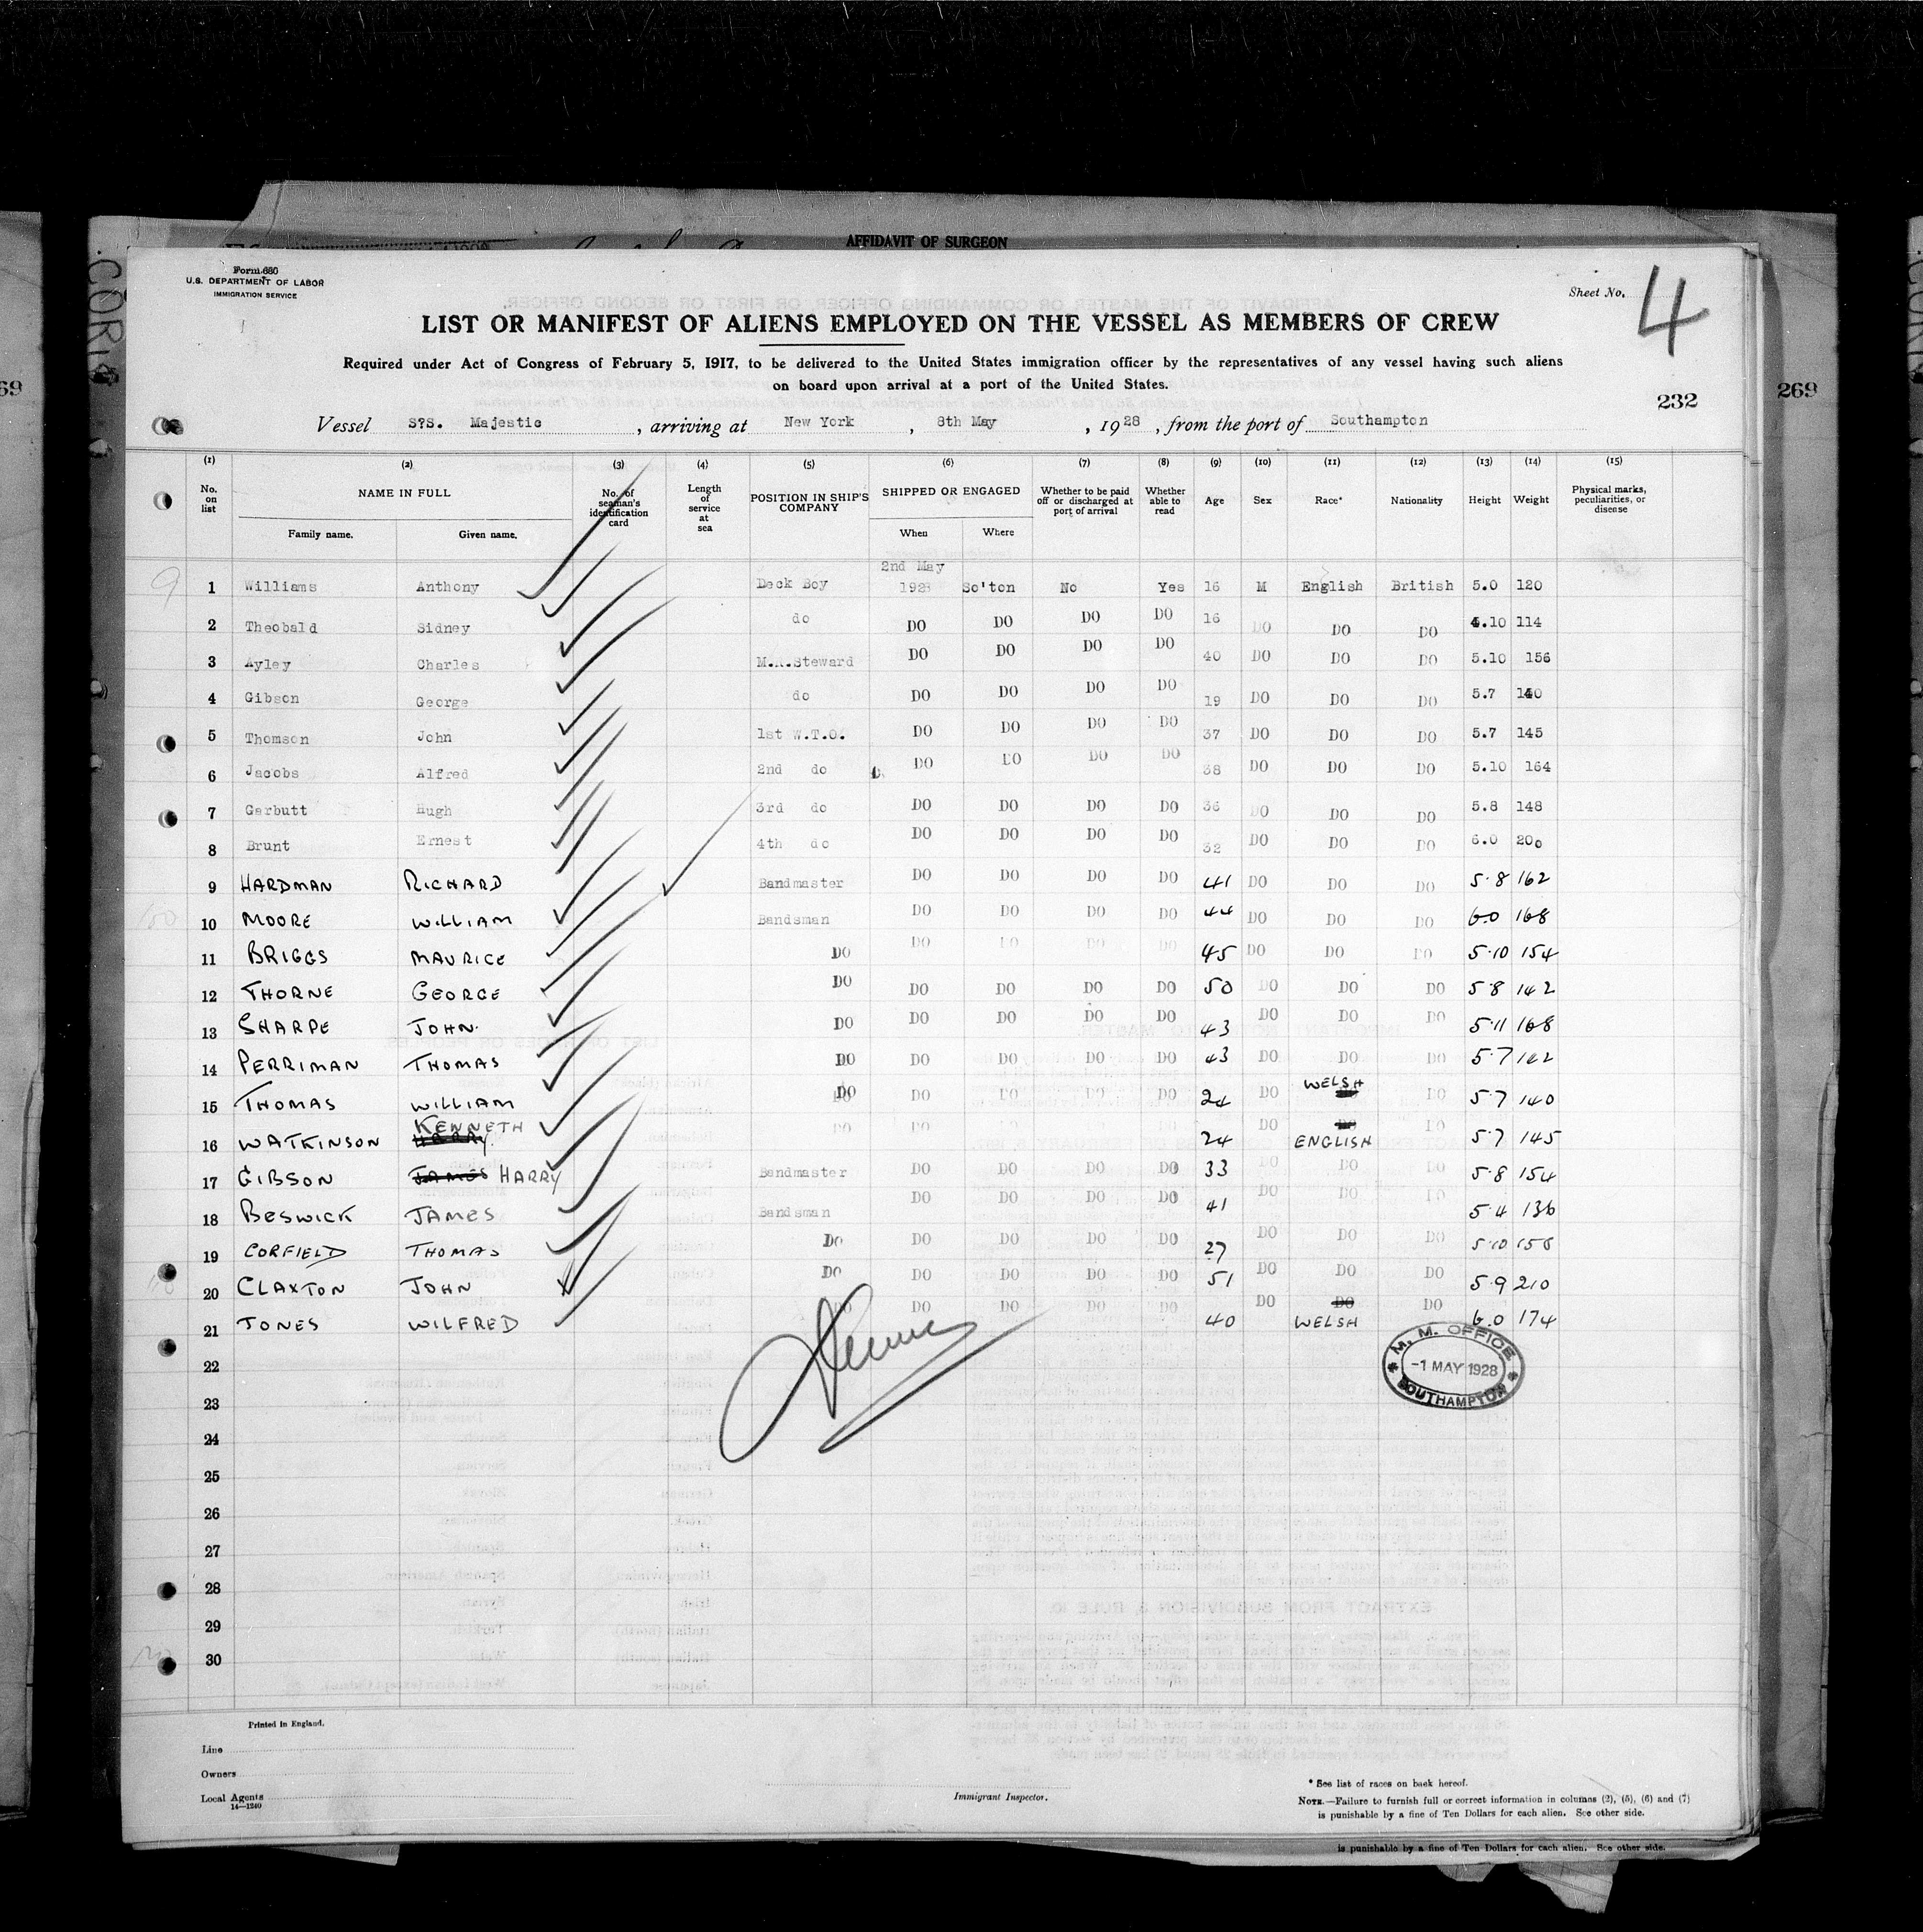 AFFIDAVIT OF SURGEON
Form 680
U.S. DEPARTMENT OF LABOR
IMMIGRATION SERVICE
Sheet No. 4
LIST OR MANIFEST OF ALIENS EMPLOYED ON THE VESSEL AS MEMBERS OF CREW
Required under Act of Congress of February 5, 1917, to be delivered to the United States immigration officer by the representatives of any vessel having such aliens
on board upon arrival at a port of the United States.
269
232
Vessel S?S. Majestic, arriving at New York, 8th May, 1928, from the port of Southampton
(1) (2) (3) (4) (5) (6) (7) (8) (9) (10) (11) (12) (13) (14) (15)
No. on list NAME IN FULL Family name. Given name. No. of seaman's identification card Length of service at sea POSITION IN SHIP'S COMPANY SHIPPED OR ENGAGED When Where Whether to be paid off or discharged at port of arrival Whether able to read Age Sex Race* Nationality Height Weight Physical marks, peculiarities, or disease
2nd May
1 Williams Anthony Deck Boy 1928 So'ton No Yes 16 M English British 5.0 120
2 Theobald Sidney do DO DO DO DO 16 DO DO DO 4.10 114
3 Ayley Charles M.R.Steward DO DO DO DO 40 DO DO DO 5.10 156
4 Gibson George do DO DO DO DO 19 DO DO DO 5.7 140
5 Thomson John 1st W.T.O. DO DO DO DO 37 DO DO DO 5.7 145
6 Jacobs Alfred 2nd do DO DO DO DO 38 DO DO DO 5.10 164
7 Garbutt Hugh 3rd do DO DO DO DO 36 DO DO DO 5.8 148
8 Brunt Ernest 4th do DO DO DO DO 32 DO DO DO 6.0 200
9 HARDMAN RICHARD Bandmaster DO DO DO DO 41 DO DO DO 5.8 162
10 MOORE WILLIAM Bandsman DO DO DO DO 44 DO DO DO 6.0 168
11 BRIGGS MAURICE DO DO DO DO DO 45 DO DO DO 5.10 154
12 THORNE GEORGE DO DO DO DO DO 50 DO DO DO 5.8 142
13 SHARPE JOHN. DO DO DO DO DO 43 DO DO DO 5.11 168
14 PERRIMAN THOMAS DO DO DO DO DO 43 DO DO DO 5.7
15 THOMAS WILLIAM DO DO DO DO DO 24 DO WELSH DO 5.7 140
16 WATKINSON HARRY KENNETH DO DO DO DO DO 24 DO DO ENGLISH DO 5.7 145
17 GIBSON JAMES HARRY Bandmaster DO DO DO DO 33 DO DO DO 5.8 154
18 BESWICK JAMES Bandsman DO DO DO DO 41 DO DO DO 5.4 136
19 CORFIELD THOMAS DO DO DO DO DO 27 DO DO DO 5.10 158
20 CLAXTON JOHN DO DO DO DO DO 51 DO DO DO 5.9 210
21 JONES WILFRED DO DO DO DO DO 40 DO DO WELSH DO 6.0 174
22
23
24
25
26
27
28
29
30
M. M. OFFICE
-1 MAY 1928
SOUTHAMPTON
Printed in England.
Line
Owners
Local Agents
14—1240
Immigrant Inspector.
* See list of races on back hereof.
NOTE.—Failure to furnish full or correct information in columns (2), (5), (6) and (7)
is punishable by a fine of Ten Dollars for each alien. See other side.
is punishable by a fine of Ten Dollars for each alien. See other side.